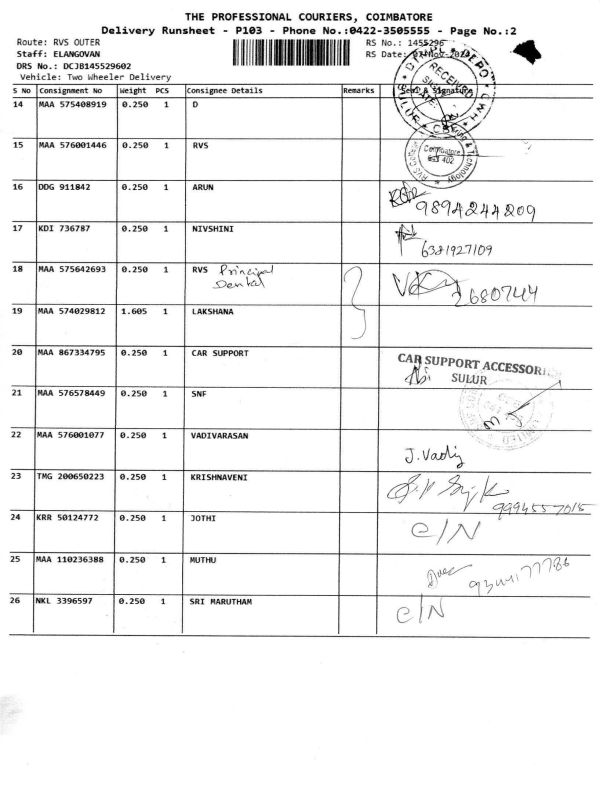 THE PROFESSIONAL COURIERS, COIMBATORE
Delivery Runsheet - P103 - Phone No.:0422-3505555 - Page No.:2
Route: RVS OUTER RS No.: 1455296
Staff: ELANGOVAN RS Date:
DRS No.: DCJB145529602
Vehicle: Two Wheeler Delivery
S No Consignment No Weight PCS Consignee Details Remarks Seal & Signature
14 MAA 575408919 0.250 1 D
RECEIVED
15 MAA 576001446 0.250 1 RVS
Coimbatore
641 402
16 DDG 911842 0.250 1 ARUN
9894244209
17 KDI 736787 0.250 1 NIVSHINI
6381927109
18 MAA 575642693 0.250 1 RVS Principal
Dental
2680744
19 MAA 574029812 1.605 1 LAKSHANA
20 MAA 867334795 0.250 1 CAR SUPPORT
CAR SUPPORT ACCESSORIES
SULUR
21 MAA 576578449 0.250 1 SNF
22 MAA 576001077 0.250 1 VADIVARASAN
J. Vadi
23 TMG 200650223 0.250 1 KRISHNAVENI
9994557015
24 KRR 50124772 0.250 1 JOTHI
C/N
25 MAA 110236388 0.250 1 MUTHU
26 NKL 3396597 0.250 1 SRI MARUTHAM
C/N